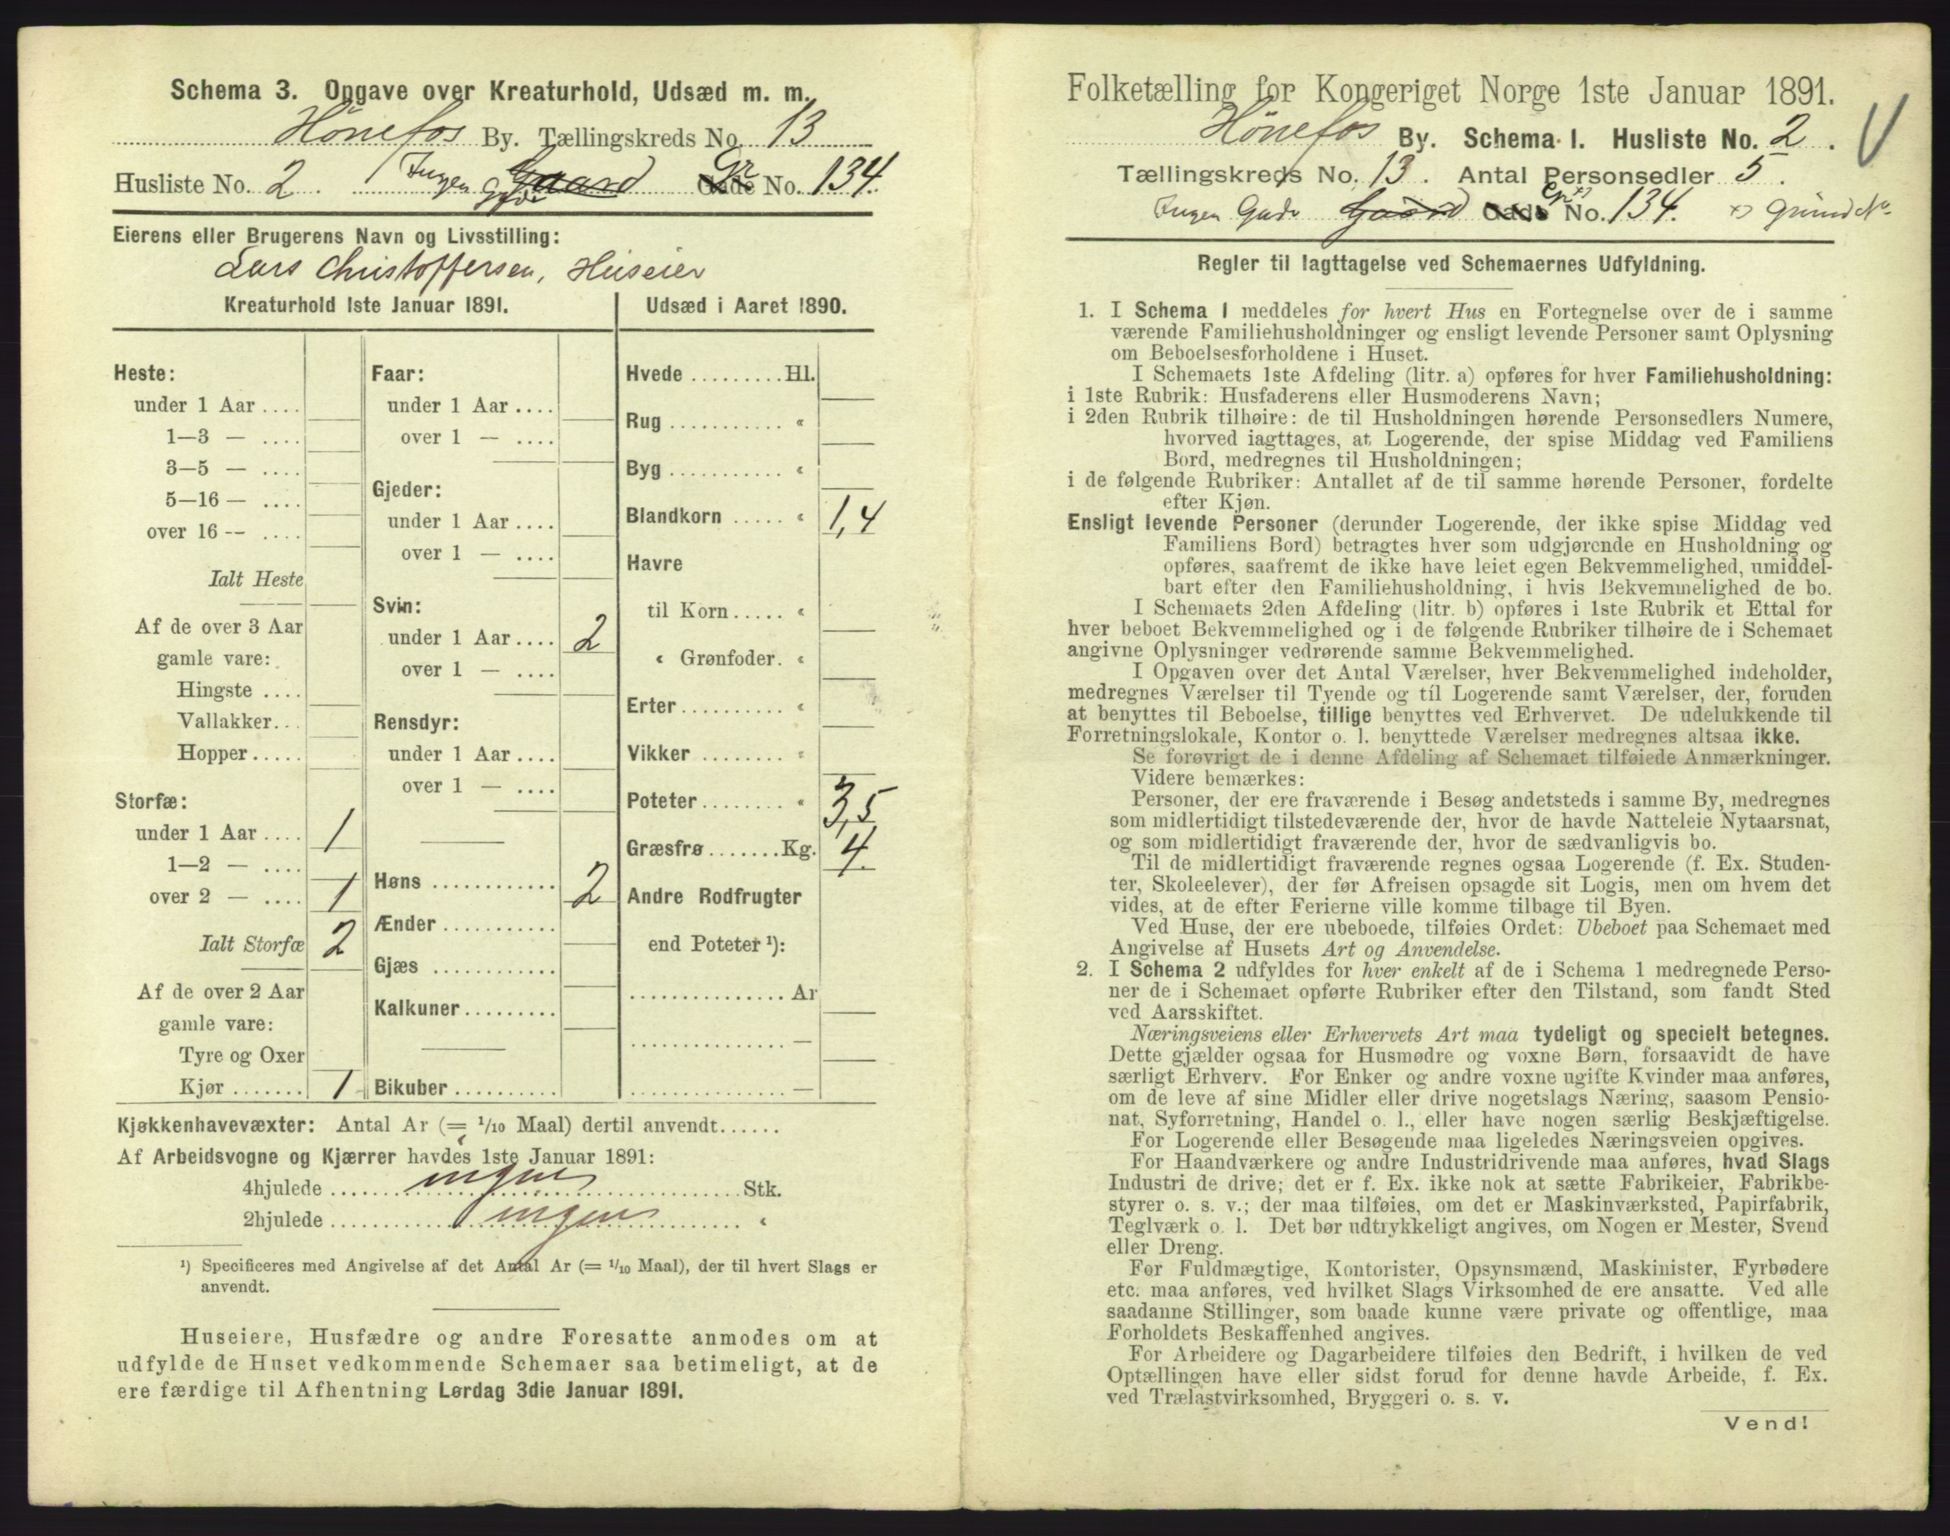 Schema 3. Opgave over Kreaturhold, Udsæd m. m.
Hönefos By. Tællingskreds No. 13
Husliste No. 2 Ingen Gade Gaard Gade Gr No. 134.
Eierens eller Brugerens Navn og Livsstilling:
Lars Christoffersen, Huseier
Kreaturhold 1ste Januar 1891.
Heste:
under 1 Aar ....
1—3 — ....
3—5 — ....
5—16 — ....
over 16 — ....
Ialt Heste
Af de over 3 Aar
gamle vare:
Hingste ....
Vallakker...
Hopper.....
Storfæ:
under 1 Aar .... 1
1—2 — ....
over 2 — .... 1
Ialt Storfæ 2
Af de over 2 Aar
gamle vare:
Tyre og Oxer
Kjør ....... 1
Faar:
under 1 Aar ....
over 1 — ....
Gjeder:
under 1 Aar ....
over 1 — ....
Svin:
under 1 Aar .... 2
over 1 — ....
Rensdyr:
under 1 Aar ....
over 1 — ....
Høns ............ 2
Ænder ............
Gjæs ............
Kalkuner.........
Bikuber ..........
Udsæd i Aaret 1890.
Hvede ......... Hl.
Rug ........... «
Byg ........... «
Blandkorn ..... « 1,4
Havre
til Korn ..... «
« Grønfoder. «
Erter .......... «
Vikker ........ «
Poteter ........ « 3,5
Græsfrø ....... Kg. 4.
Andre Rodfrugter
end Poteter ¹):
............... Ar
............... —
............... —
Kjøkkenhavevæxter: Antal Ar (= 1/10 Maal) dertil anvendt......
Af Arbeidsvogne og Kjærrer havdes 1ste Januar 1891:
4hjulede ....... ingen ....... Stk.
2hjulede ....... ingen ....... «
¹) Specificeres med Angivelse af det Antal Ar (= 1/10 Maal), der til hvert Slags er
anvendt.
Huseiere, Husfædre og andre Foresatte anmodes om at
udfylde de Huset vedkommende Schemaer saa betimeligt, at de
ere færdige til Afhentning Lørdag 3die Januar 1891.
Folketælling for Kongeriget Norge 1ste Januar 1891.
Hönefos By. Schema 1. Husliste No. 2. V
Tællingskreds No. 13. Antal Personsedler 5.
Ingen Gade Gaard Gade Gr x) No. 134. x) Grund No.
Regler til Iagttagelse ved Schemaernes Udfyldning.
1. I Schema 1 meddeles for hvert Hus en Fortegnelse over de i samme
værende Familiehusholdninger og ensligt levende Personer samt Oplysning
om Beboelsesforholdene i Huset.
I Schemaets 1ste Afdeling (litr. a) opføres for hver Familiehusholdning:
i 1ste Rubrik: Husfaderens eller Husmoderens Navn;
i 2den Rubrik tilhøire: de til Husholdningen hørende Personsedlers Numere,
hvorved iagttages, at Logerende, der spise Middag ved Familiens
Bord, medregnes til Husholdningen;
i de følgende Rubriker: Antallet af de til samme hørende Personer, fordelte
efter Kjøn.
Ensligt levende Personer (derunder Logerende, der ikke spise Middag ved
Familiens Bord) betragtes hver som udgjørende en Husholdning og
opføres, saafremt de ikke have leiet egen Bekvemmelighed, umiddel-
bart efter den Familiehusholdning, i hvis Bekvemmelighed de bo.
I Schemaets 2den Afdeling (litr. b) opføres i 1ste Rubrik et Ettal for
hver beboet Bekvemmelighed og i de følgende Rubriker tilhøire de i Schemaet
angivne Oplysninger vedrørende samme Bekvemmelighed.
I Opgaven over det Antal Værelser, hver Bekvemmelighed indeholder,
medregnes Værelser til Tyende og til Logerende samt Værelser, der, foruden
at benyttes til Beboelse, tillige benyttes ved Erhvervet. De udelukkende til
Forretningslokale, Kontor o. l. benyttede Værelser medregnes altsaa ikke.
Se forøvrigt de i denne Afdeling af Schemaet tilføiede Anmærkninger.
Videre bemærkes:
Personer, der ere fraværende i Besøg andetsteds i samme By, medregnes
som midlertidigt tilstedeværende der, hvor de havde Natteleie Nytaarsnat,
og som midlertidigt fraværende der, hvor de sædvanligvis bo.
Til de midlertidigt fraværende regnes ogsaa Logerende (f. Ex. Studen-
ter, Skoleelever), der før Afreisen opsagde sit Logis, men om hvem det
vides, at de efter Ferierne ville komme tilbage til Byen.
Ved Huse, der ere ubeboede, tilføies Ordet: Ubeboet paa Schemaet med
Angivelse af Husets Art og Anvendelse.
2. I Schema 2 udfyldes for hver enkelt af de i Schema 1 medregnede Perso-
ner de i Schemaet opførte Rubriker efter den Tilstand, som fandt Sted
ved Aarsskiftet.
Næringsveiens eller Erhvervets Art maa tydeligt og specielt betegnes.
Dette gjælder ogsaa for Husmødre og voxne Børn, forsaavidt de have
særligt Erhverv. For Enker og andre voxne ugifte Kvinder maa anføres,
om de leve af sine Midler eller drive nogetslags Næring, saasom Pensio-
nat, Syforretning, Handel o. l., eller have nogen særlig Beskjæftigelse.
For Logerende eller Besøgende maa ligeledes Næringsveien opgives.
For Haandværkere og andre Industridrivende maa anføres, hvad Slags
Industri de drive; det er f. Ex. ikke nok at sætte Fabrikeier, Fabrikbe-
styrer o. s. v.; der maa tilføies, om det er Maskinværksted, Papirfabrik,
Teglværk o. l. Det bør udtrykkeligt angives, om Nogen er Mester, Svend
eller Dreng.
For Fuldmægtige, Kontorister, Opsynsmænd, Maskinister, Fyrbødere
etc. maa anføres, ved hvilket Slags Virksomhed de ere ansatte. Ved alle
saadanne Stillinger, som baade kunne være private og offentlige, maa
Forholdets Beskaffenhed angives.
For Arbeidere og Dagarbeidere tilføies den Bedrift, i hvilken de ved
Optællingen have eller sidst forud for denne havde Arbeide, f. Ex.
ved Trælastvirksomhed, Bryggeri o. s. v.
Vend!